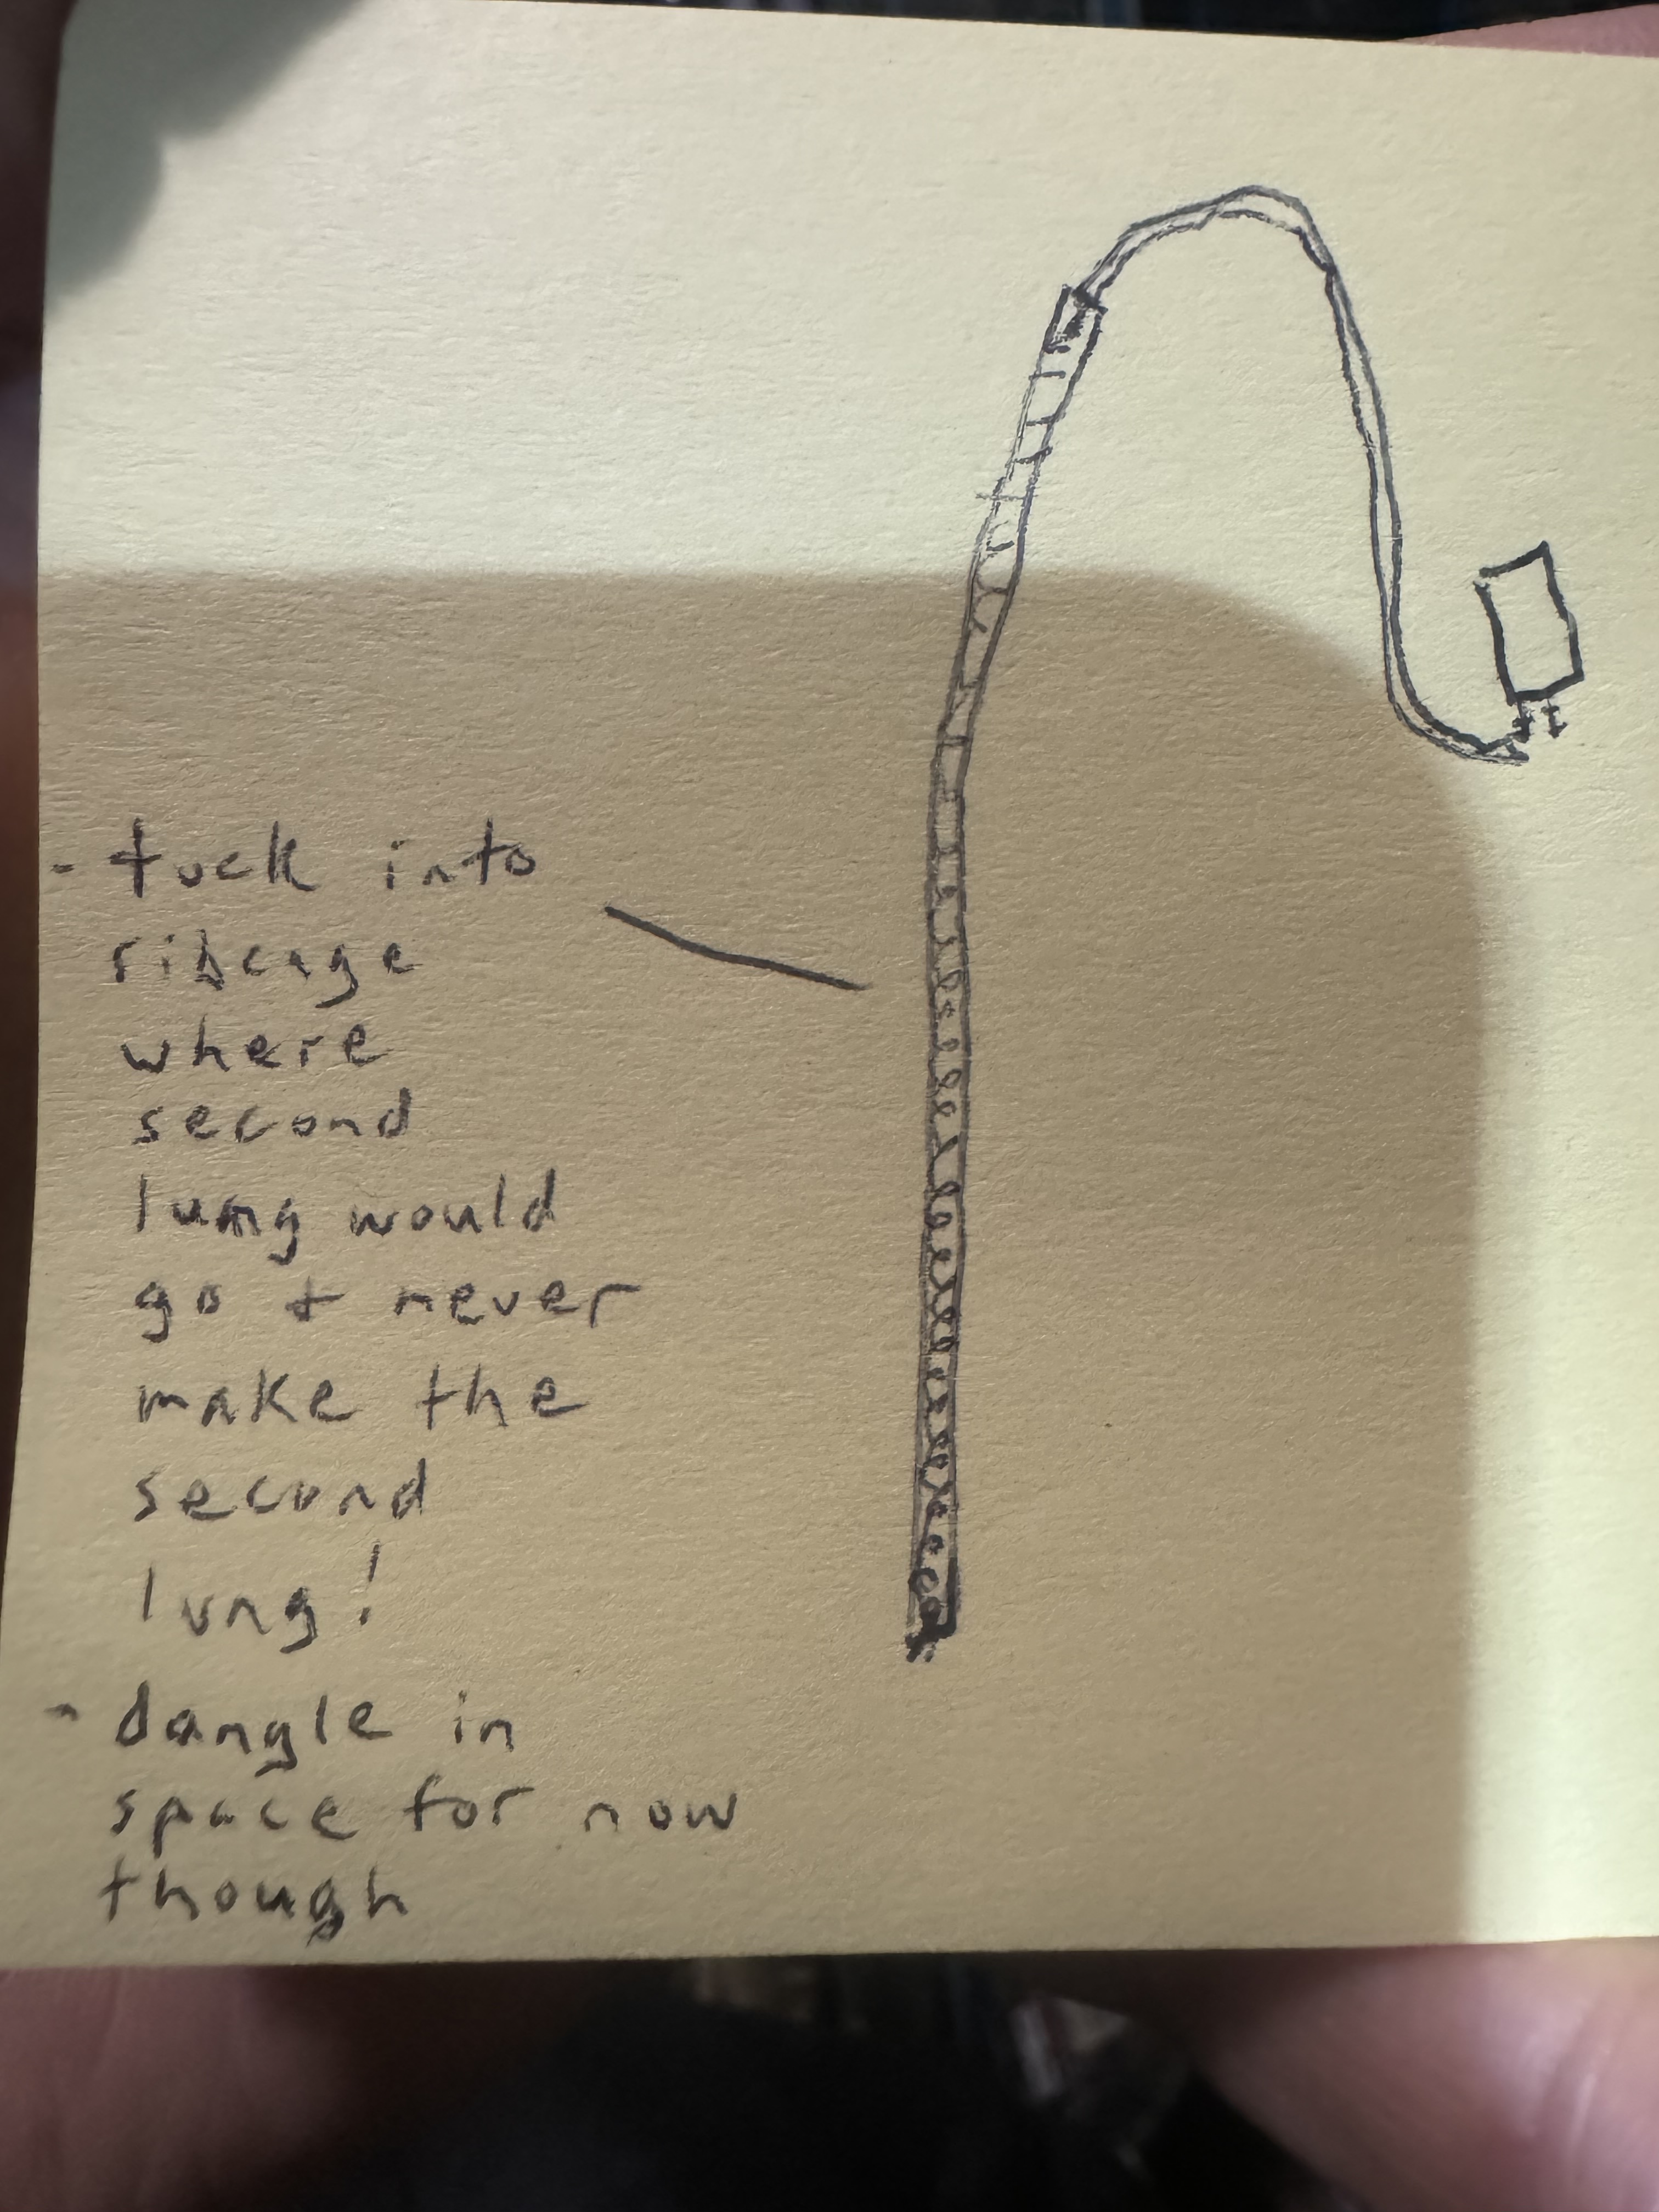 - tuck into
ribcage
where
second
lung would
go + never
make the
second
lung!
- dangle in
space for now
though